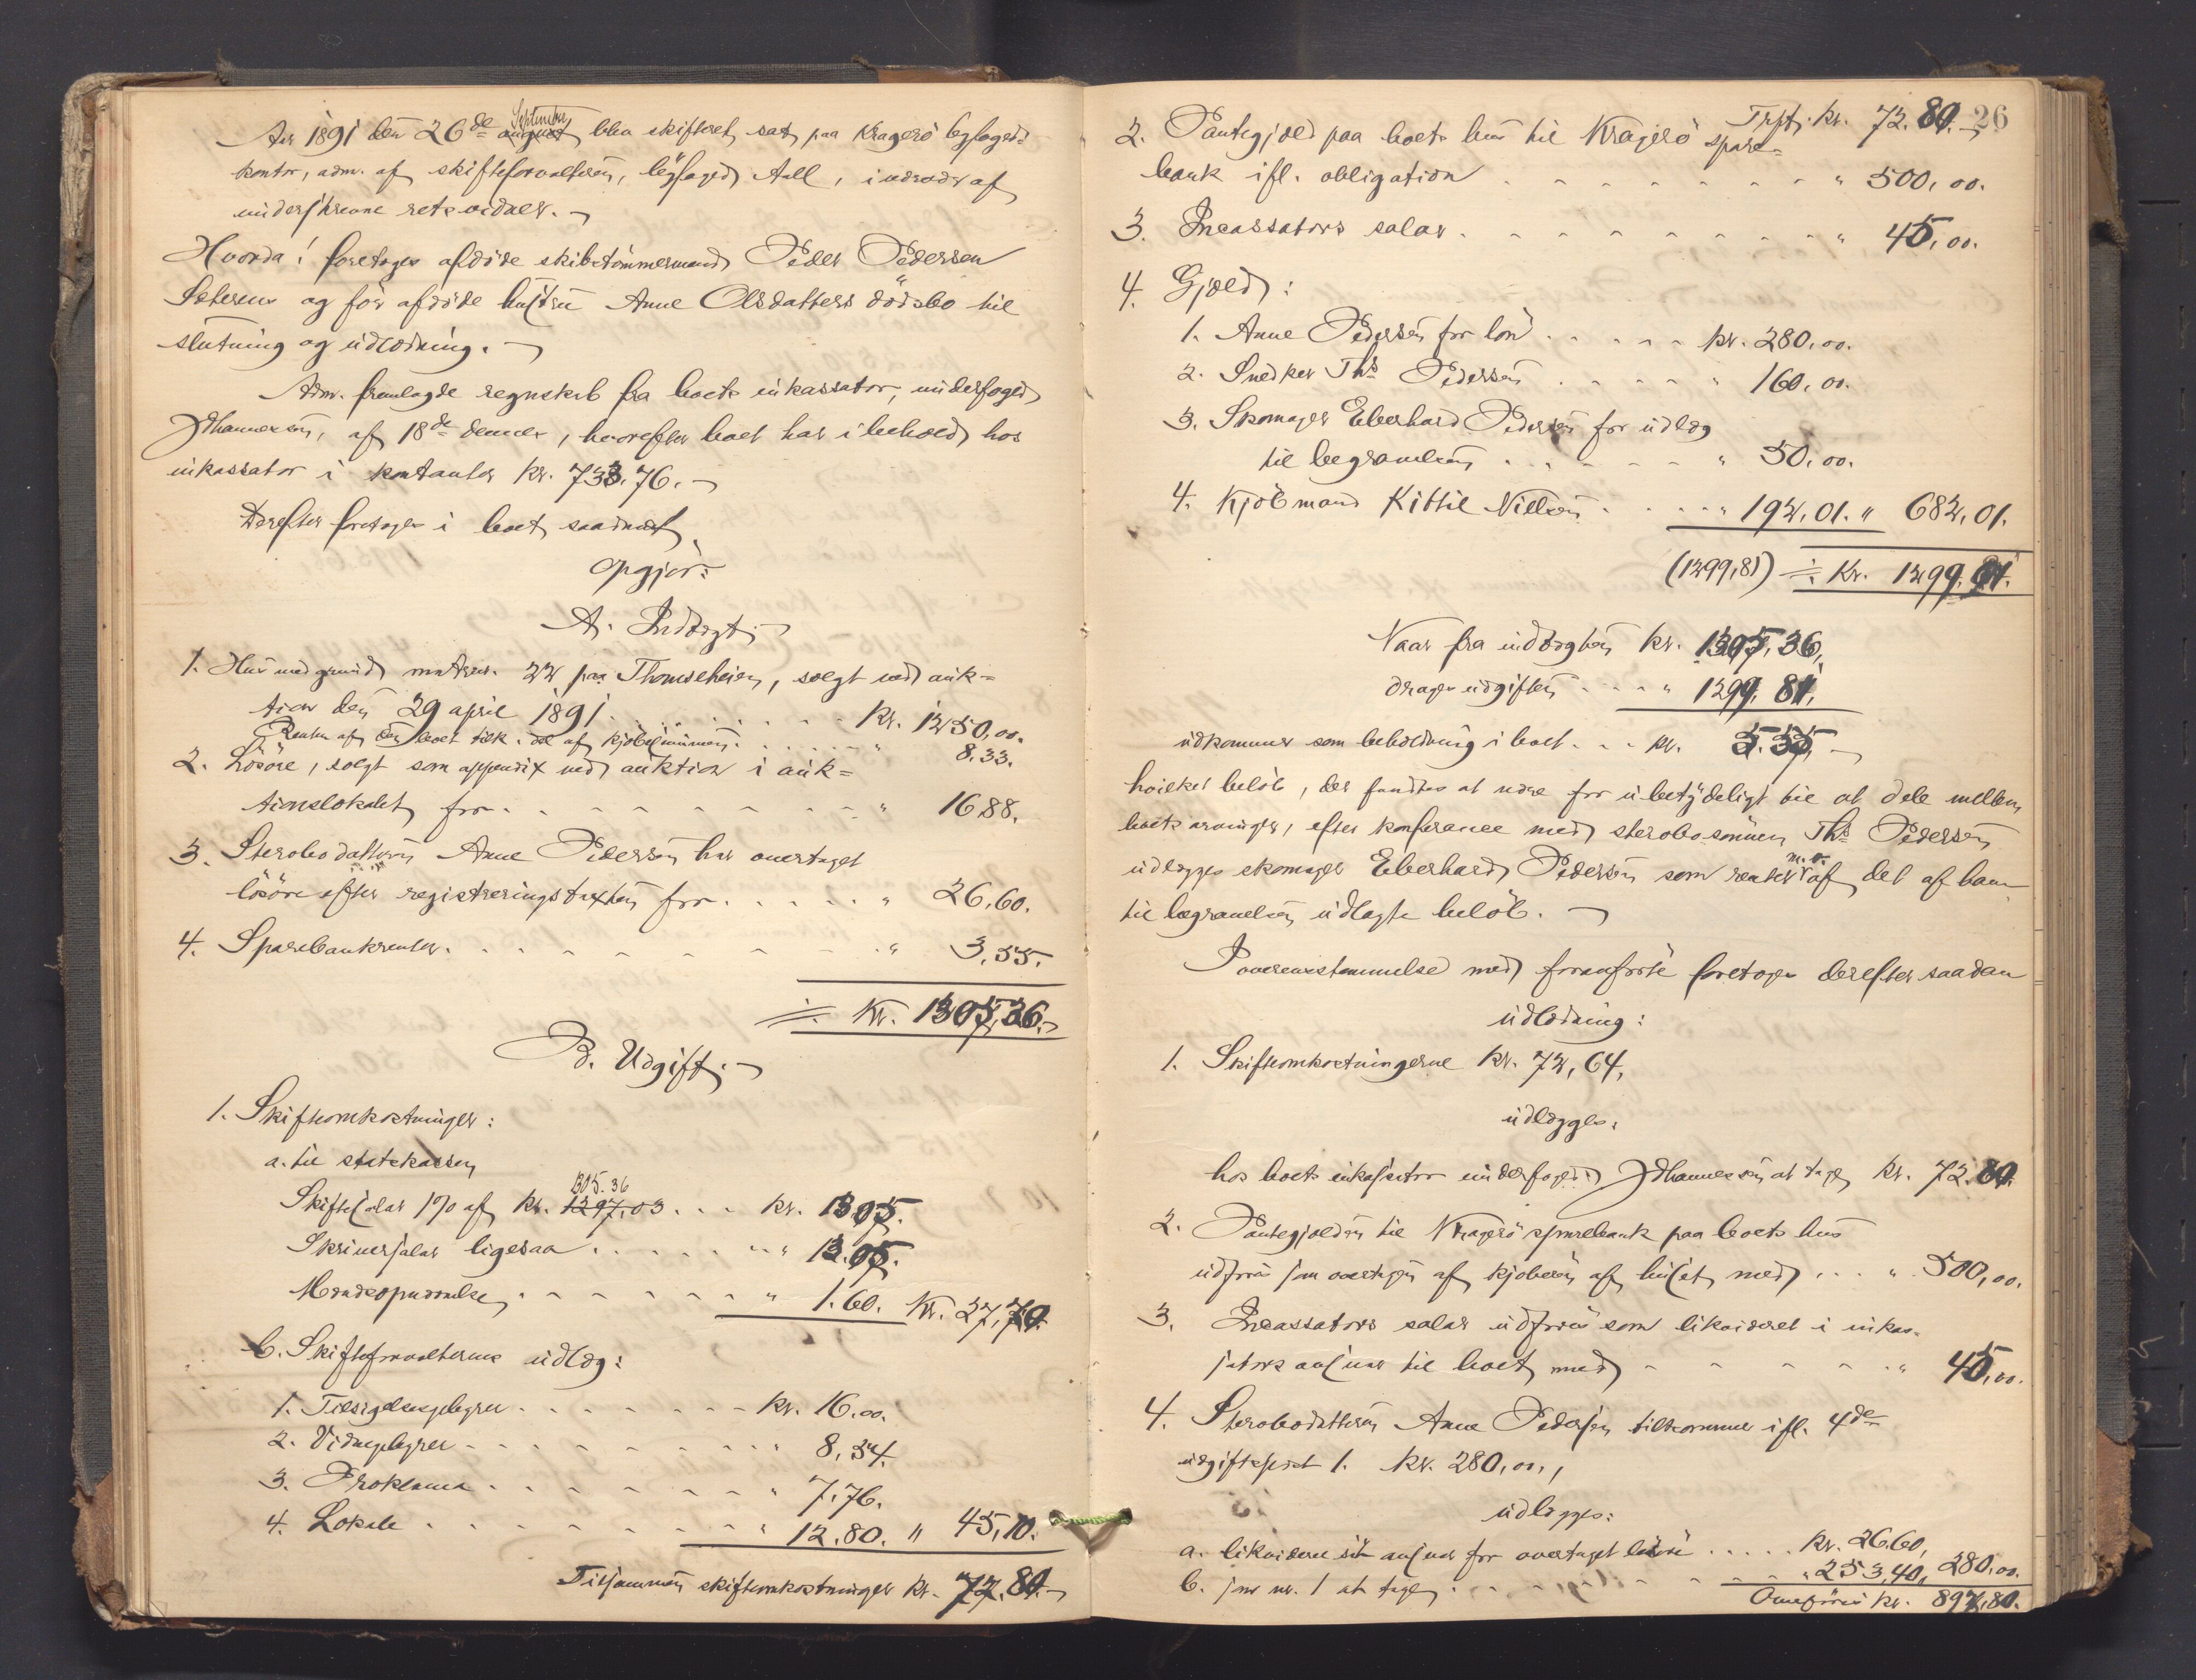 Aar 1891 den 26de august September blev skifteret sat paa Kragerö byfoged-
kontor, adm. af skifteforvalteren, byfoged Aall, i nærvær af
underskrevne retsvidner.
Hvorda: foretoges afdöde skibstömmermand Peder Pedersen
og för afdöde hustru Anne Olsdatters dödsbo til
slutning og udlodning.
Adm. fremlagde regnskab fra boets inkassator, underfoged
Johannessen, af 18de dennes, hvorefter boet har i behold hos
inkassator i kontanter kr. 733.76.
Derefter foretoges i boet saadant
opgjör:
A. Indtægt.
1. Hus med grund matrnr. 22 paa Thomseheien, solgt ved auk-
tion den 29 april 1891 . . . kr. 1250,00.
Renter af den boet tilk. del af kjöbesummen . . . " 8.33.
2. Lösöre, solgt som appendix ved auktion i auk-
tionslokalet for . . . " 16.88.
3. Sterbodatteren Anne Pedersen har overtaget
lösöre efter registreringstaxten for . . . " 26.60.
4. Sparebankrenter . . . " 3,55.
= Kr. 1305,36.
B. Udgift.
1. Skifteomkostninger:
a. til statskassen
Skiftesalar 1% af kr. 1297,03 1305.36 . . . kr. 13.05.
Skriversalar ligesaa . . . " 13.05.
. . . " 1.60. Kr. 27,70.
b. Skifteforvalterens udlæg:
1. Tilsigelsesgebyrer . . . kr. 16.00.
2. Vidnegebyrer . . . " 8,54.
3. Proklama . . . " 7,76.
4. Lokale . . . " 12.80. " 45,10.
Tilsammen skifteomkostninger kr. 72.80.
26
Trpt. kr. 72.80.
2. Pantegjæld paa boets hus til Kragerö spare-
bank ifl. obligation . . . " 500,00.
3. Incassators salar . . . " 45,00.
4. Gjæld:
1. Anne Pedersen for lön . . . kr. 280,00.
2. Snedker Ths Pedersen . . . " 160,00.
3. Skomager Eberhard Pedersen for udlæg
til begravelsen . . . " 50,00.
4. Kjöbmand Kittil Nielsen . . . " 192,01. " 682,01.
(1299,81) = Kr. 1299.81.
Naar fra indtægten kr. 1305,36,
drages udgiften . . . " 1299,81,
udkommer som beholdning i boet . . . kr. 5.55,
hvilket belöb, der fandtes at være for ubetydeligt til at dele mellem
boets arvinger, efter konferance med sterbosönnen Ths Pedersen
udlægges skomager Eberhard Pedersen som renter m.v. af det af ham
til begravelsen udlagte belöb.
I overensstemmelse med foranförte foretoges derefter saadan
udlodning:
1. Skifteomkostningerne kr. 72,64,
udlægges:
hos boets inkassator underfoged Johannessen at tage kr. 72.80.
2. Pantegjælden til Kragerö sparebank paa boets hus
udföres som overtagen af kjöberen af huset med . . . " 500,00.
3. Incassators salar udföres som likvideret i inkas-
sators ansvar til boet med . . . " 45,00.
4. Sterbodatteren Anne Pedersen tilkommer ifl. 4de
udgiftspost 1. kr. 280,00,
udlægges:
a. likvideres sit ansvar for overtaget lösöre . . . kr. 26.60,
b. som nr. 1 at tage . . . " 253,40, 280,00.
Overföres kr. 897,80.